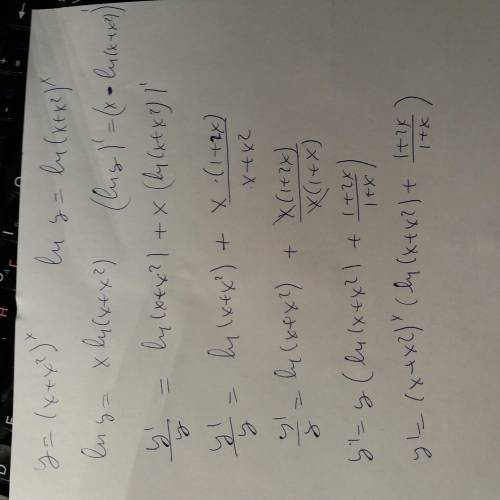 y = (x+x²)^x    ln y = ln (x+x²)^x
ln y = x ln(x+x²)    (ln y)' = (x · ln(x+x²))'
y'/y = ln(x+x²) + x (ln(x+x²))'
y'/y = ln(x+x²) + x·(1+2x)/x+x²
y'/y = ln(x+x²) + x(1+2x)/x(1+x)
y' = y (ln(x+x²) + 1+2x/1+x)
y' = (x+x²)^x (ln(x+x²) + 1+2x/1+x)